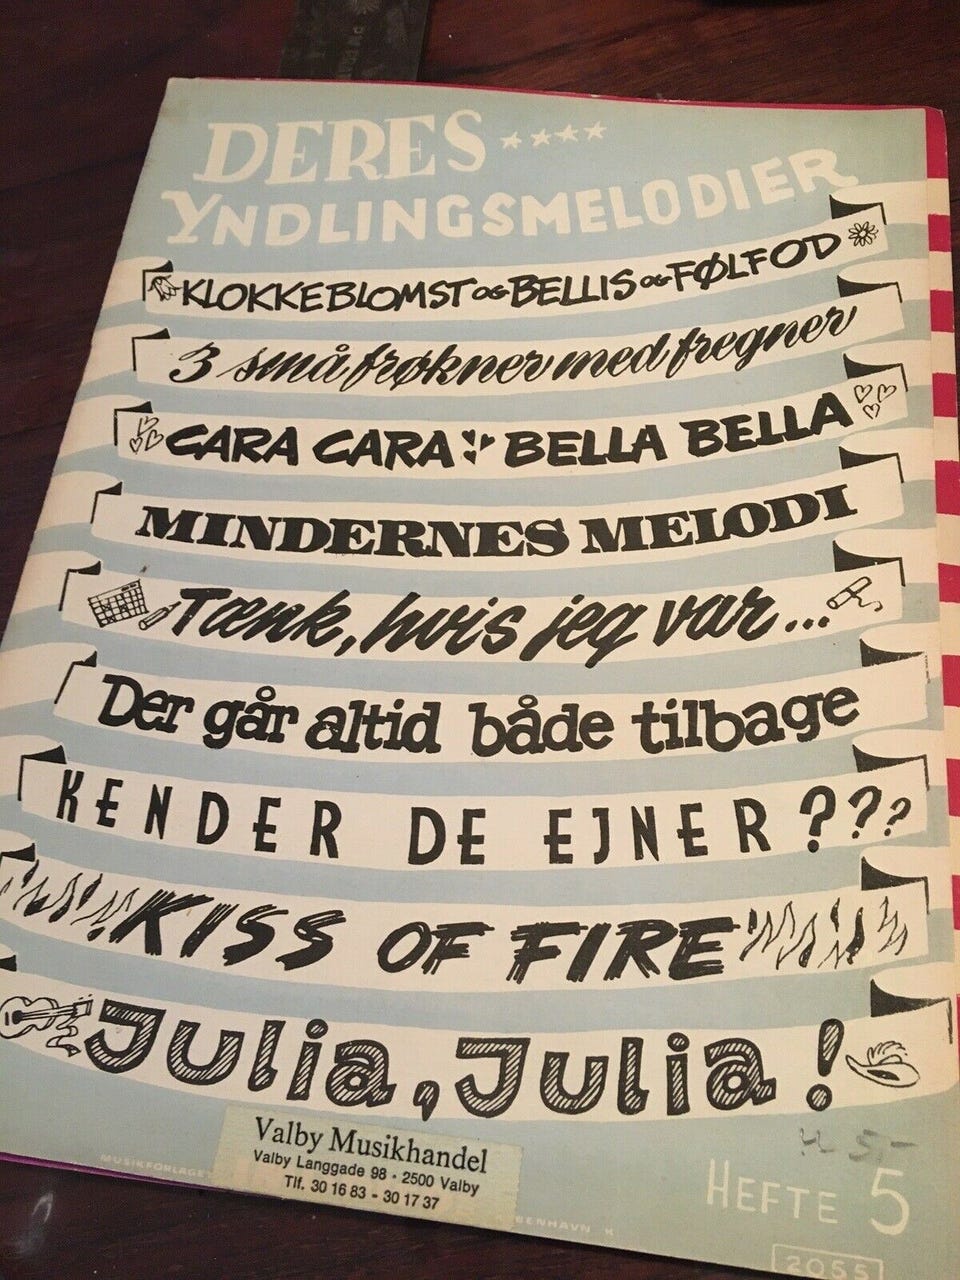 DERES
YNDLINGSMELODIER
KLOKKEBLOMST OG BELLIS OG FØLFOD
3 små frøkner med fregner
CARA CARA BELLA BELLA
MINDERNES MELODI
Tænk, hvis jeg var...
Der går altid både tilbage
KENDER DE EJNER???
KISS OF FIRE
Julia, Julia!
Valby Musikhandel
Valby Langgade 98 - 2500 Valby
Tlf. 30 16 83 - 30 17 37
MUSIKFORLAGET
KØBENHAVN K
HEFTE 5
2055